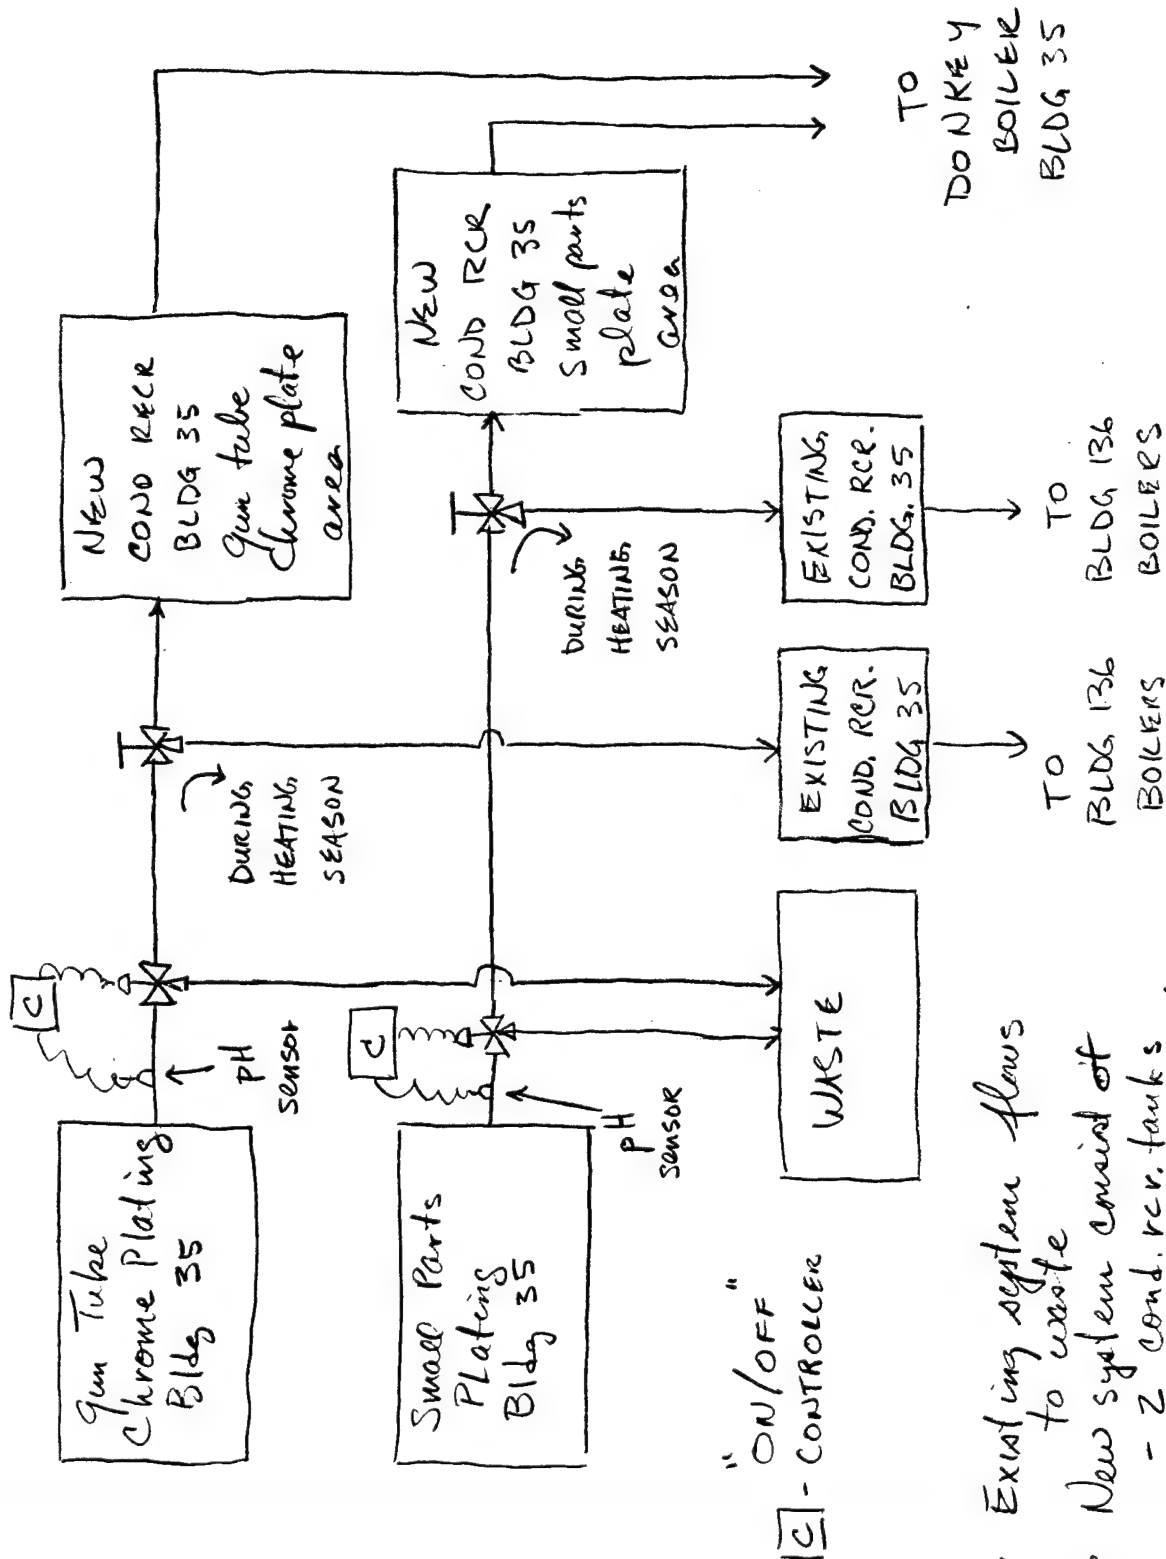 Gun Tube
Chrome Plating
Bldg 35
C
pH
sensor
DURING
HEATING
SEASON
NEW
COND RECR
BLDG 35
Gun tube
Chrome plate
area
Small Parts
Plating
Bldg 35
C
pH
sensor
DURING
HEATING
SEASON
NEW
COND RCR
BLDG 35
Small parts
plate
area
TO
DONKEY
BOILER
BLDG 35
WASTE
EXISTING
COND. RCR.
BLDG 35
TO
BLDG 136
BOILERS
EXISTING
COND. RCR.
BLDG. 35
TO
BLDG 136
BOILERS
"ON/OFF"
C - CONTROLLER
Existing system flows
to waste
New system consist of
- 2 cond. rcr. tanks